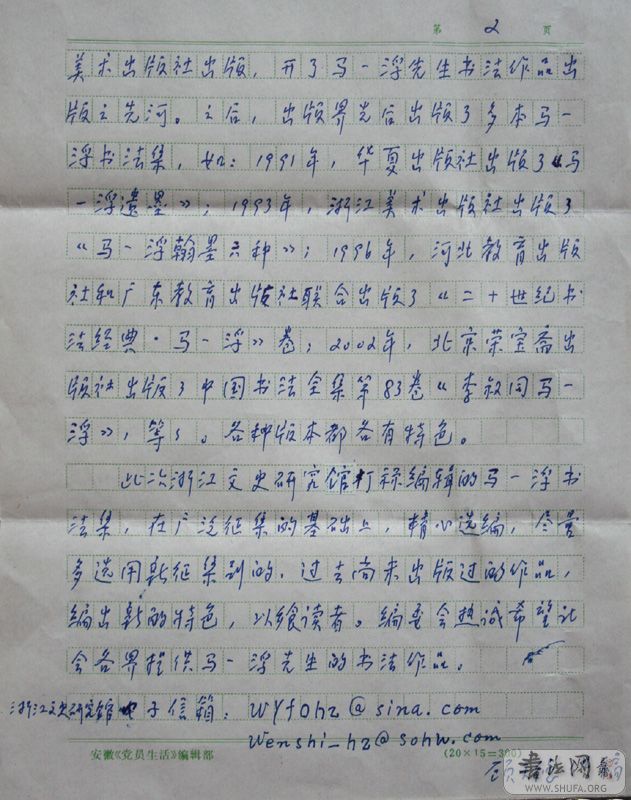 第 2 页
美术出版社出版，开了马一浮先生书法作品出
版之先河。之后，出版界先后出版了多本马一
浮书法集，如：1991年，华夏出版社出版了《马
一浮遗墨》；1993年，浙江美术出版社出版了
《马一浮翰墨六种》；1996年，河北教育出版
社和广东教育出版社联合出版了《二十世纪书
法经典·马一浮》卷；2002年，北京荣宝斋出
版社出版了中国书法全集第83卷《李叔同马一
浮》，等等。各种版本都各有特色。
此次浙江文史研究馆打稼编辑的马一浮书
法集，在广泛征集的基础上，精心选编，尽量
多选用新征集到的，过去尚未出版过的作品，
编出新的特色，以飨读者。编委会热诚希望社
会各界提供马一浮先生的书法作品。
浙江文史研究馆电子信箱：wyfohz@sina.com
wenshi_hz@sohw.com
安徽《党员生活》编辑部 (20×15=300)
书法网
WWW.SHUFA.ORG